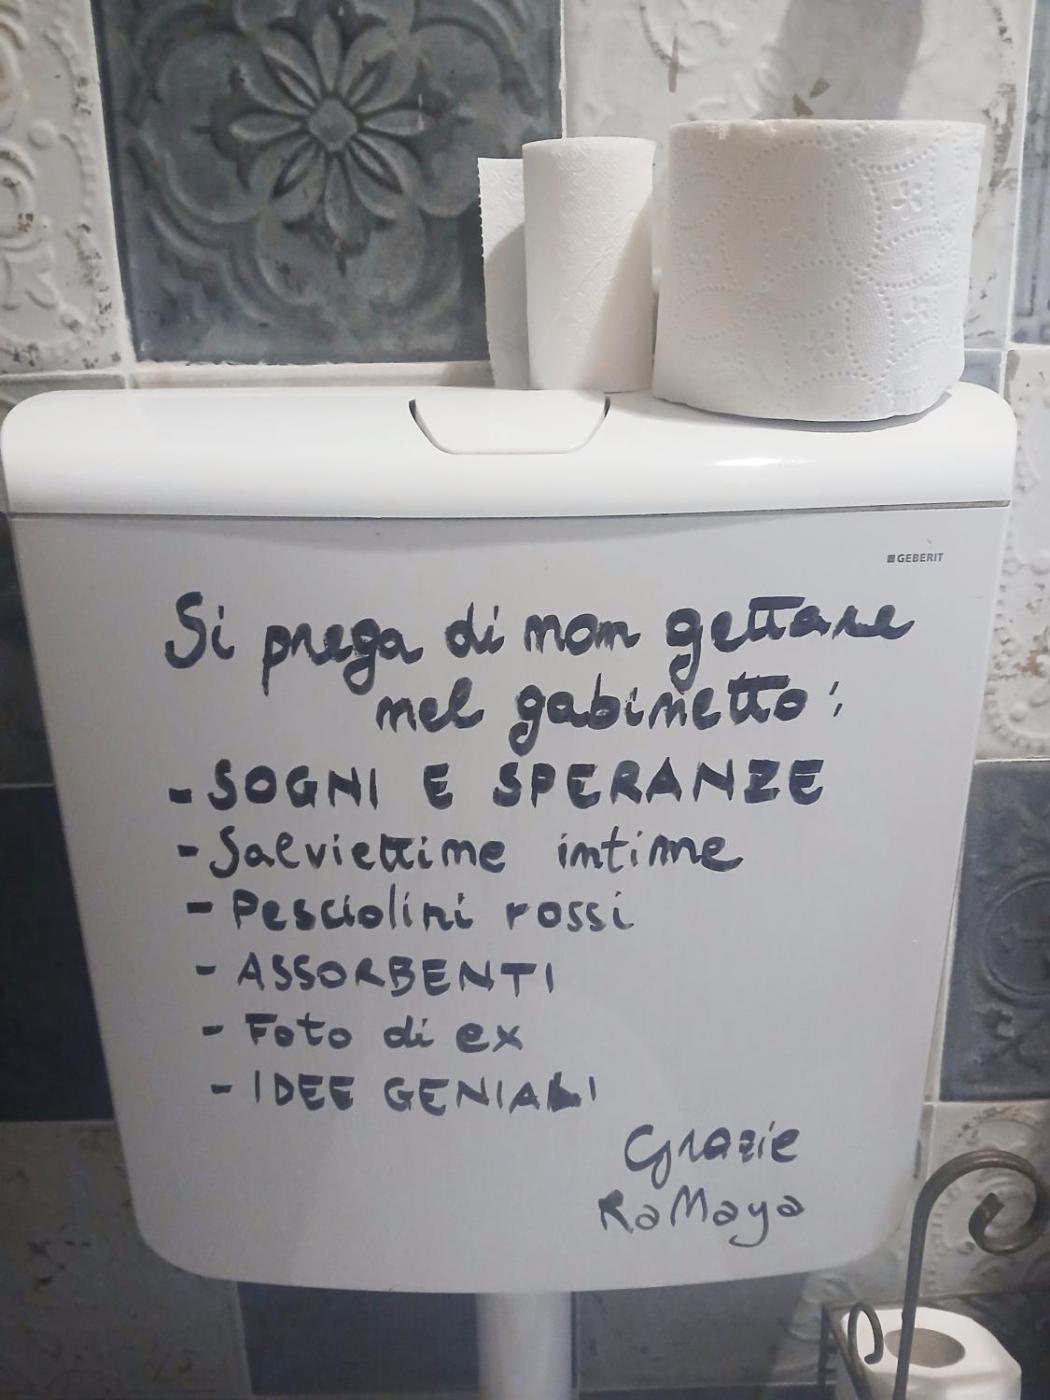 GEBERIT
Si prega di non gettare
nel gabinetto:
- SOGNI E SPERANZE
- Salviettine intime
- Pesciolini rossi
- ASSORBENTI
- Foto di ex
- IDEE GENIALI
Grazie
RaMaya